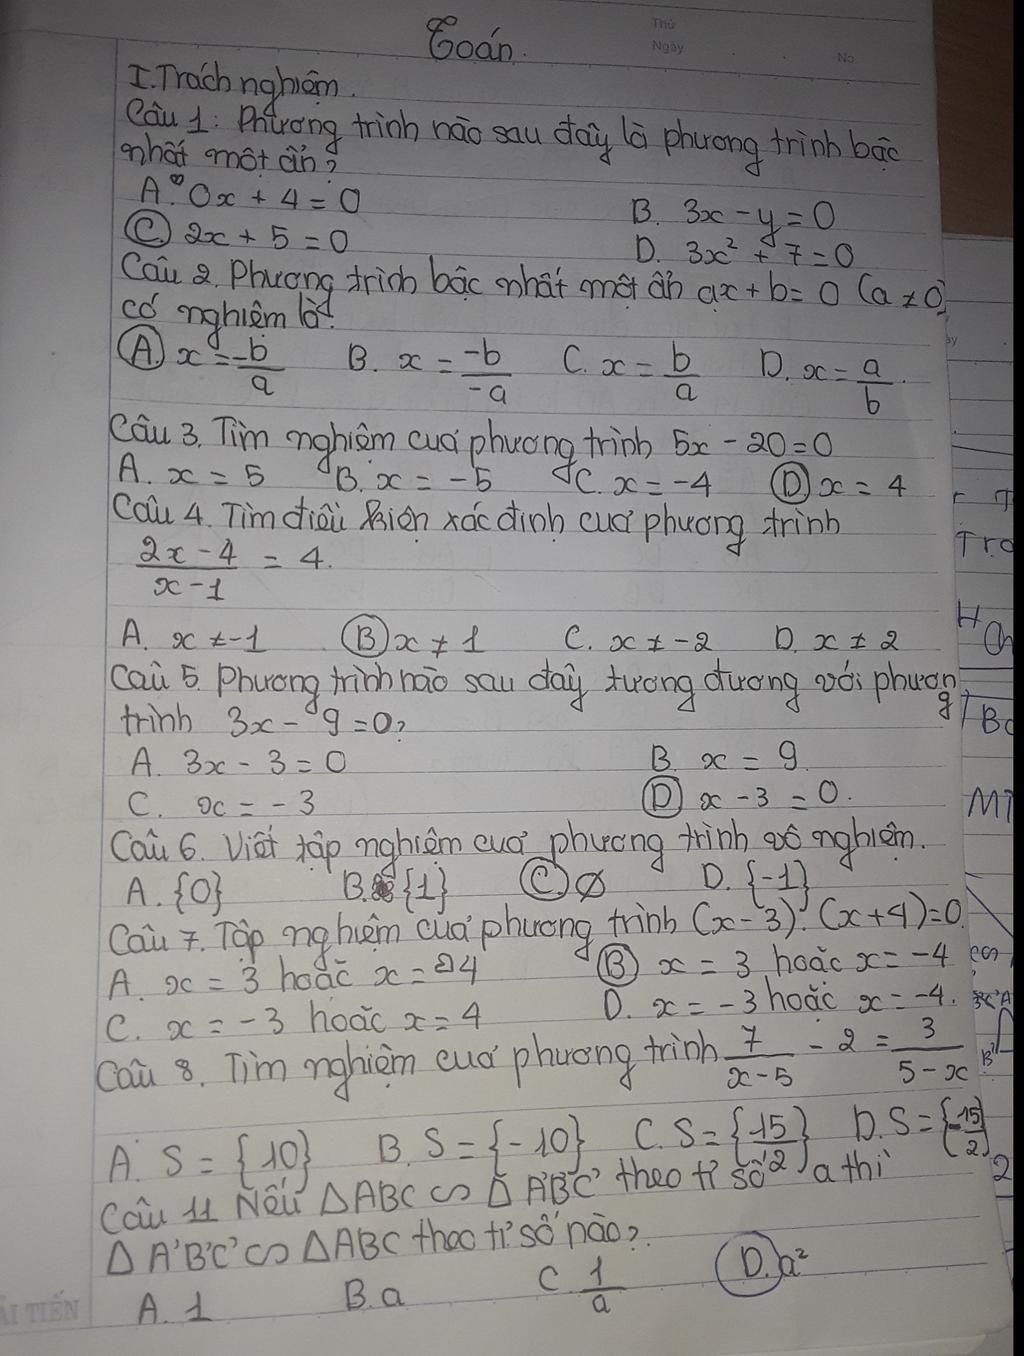 Toán.
Thứ
Ngày
No
I. Trách nghiệm.
Câu 1: Phương trình nào sau đây là phương trình bậc
nhất một ẩn?
A. 0x + 4 = 0
B. 3x - y = 0
C. 2x + 5 = 0
D. 3x² + 7 = 0
Câu 2. Phương trình bậc nhất một ẩn ax + b = 0 (a ≠ 0)
có nghiệm là:
A. x = -b/a B. x = -b/-a C. x = b/a D. x = a/b.
Câu 3. Tìm nghiệm của phương trình 5x - 20 = 0
A. x = 5 B. x = -5 C. x = -4 D x = 4
Câu 4. Tìm điều kiện xác định của phương trình
2x - 4/x - 1 = 4.
A. x ≠ -1 B x ≠ 1 C. x ≠ -2 D. x ≠ 2
Câu 5. Phương trình nào sau đây tương đương với phương
trình 3x - 9 = 0?
A. 3x - 3 = 0 B. x = 9
C. x = -3 D x - 3 = 0.
Câu 6. Viết tập nghiệm của phương trình vô nghiệm.
A. {0} B. {1} C. ∅ D. {-1}
Câu 7. Tập nghiệm của phương trình (x - 3). (x + 4) = 0
A. x = 3 hoặc x = 4 B x = 3 hoặc x = -4
C. x = -3 hoặc x = 4 D. x = -3 hoặc x = -4.
Câu 8. Tìm nghiệm của phương trình 7/x - 5 - 2 = 3/5 - x
A. S = {10} B. S = {-10} C. S = {15/2} D. S = {-15/2}
Câu 11 Nếu ΔABC ∽ ΔA'B'C' theo tỉ số a thì
ΔA'B'C' ∽ ΔABC theo tỉ số nào?
A. 1 B. a C. 1/a D. a²
ẢI TIẾN